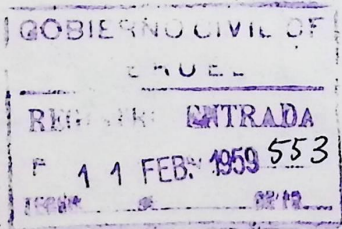 GOBIERNO CIVIL DE
TERUEL
REGISTRO ENTRADA
11 FEB. 1959 553